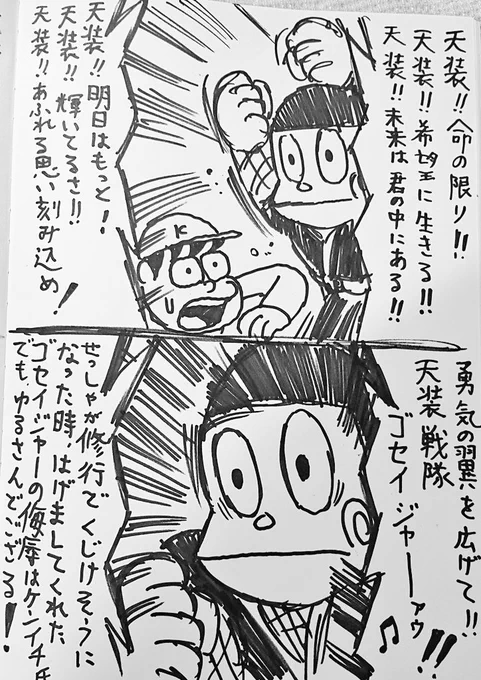 天装!!命の限り!!
天装!!希望に生きる!!
天装!!未来は君の中にある!!
天装!!明日はもっと!
天装!!輝いてるさ!!
天装!!あふれる思い刻み込め!
K
勇気の翼を広げて!!
天装戦隊
ゴセイジャーーァゥ♫!!
せっしゃが修行でくじけそうに
なった時はげましてくれた
ゴセイジャーの侮辱はケンイチ氏
でもゆるさんでござる!